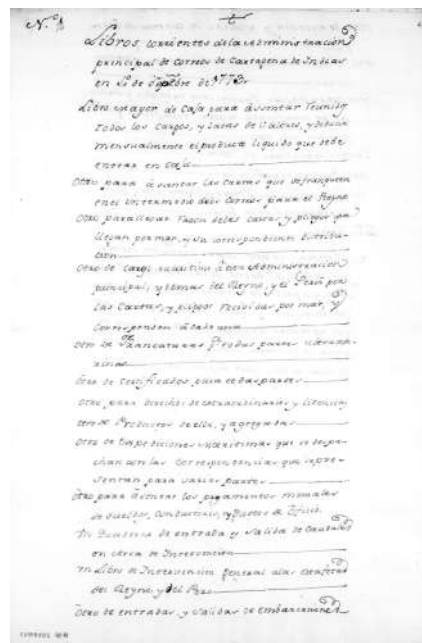 N.º 1
Libros, corrientes de la Administracion
principal de Correos de Cartagena de Indias
en 1.º de Septbre de 1773.
Libro mayor de Caja para asentar reunidos
todos los cargos, y datas de Valores, y deducir
mensualmente el producto liquido que debe
entrar en Caja
Otro para asentar las Cartas que se franqueen
en el intermedio de los Correos para el Reyno
Otro para llevar razon de las cartas, y pliegos que
llegan por mar, y su correspondiente distribu-
cion
Otro de cargo que se hace a esta Administracion
principal, y demas del Reyno, y el Perú por
las Cartas, y pliegos recividas por mar, y
corresponden a cada una
Otro de franqueaturas para todas partes ultrama-
rinas
Otro de Certificados para todas partes
Otro para derechos de extraordinarios y licencias
Otro de Productos de ellos, y agregadas
Otro de Expediciones maritimas que se despa-
chan con las correspondencias que se pre-
sentan para varias partes
Otro para asentar los pagamentos mensuales
de sueldos, Conductores, y Gastos de Oficio
Un Quaderno de entrada y salida de Caudales
en Arca de Intervencion
Un Libro de Intervencion general a las estafetas
del Reyno y del Perú
Otro de entradas y salidas de Embarcaciones